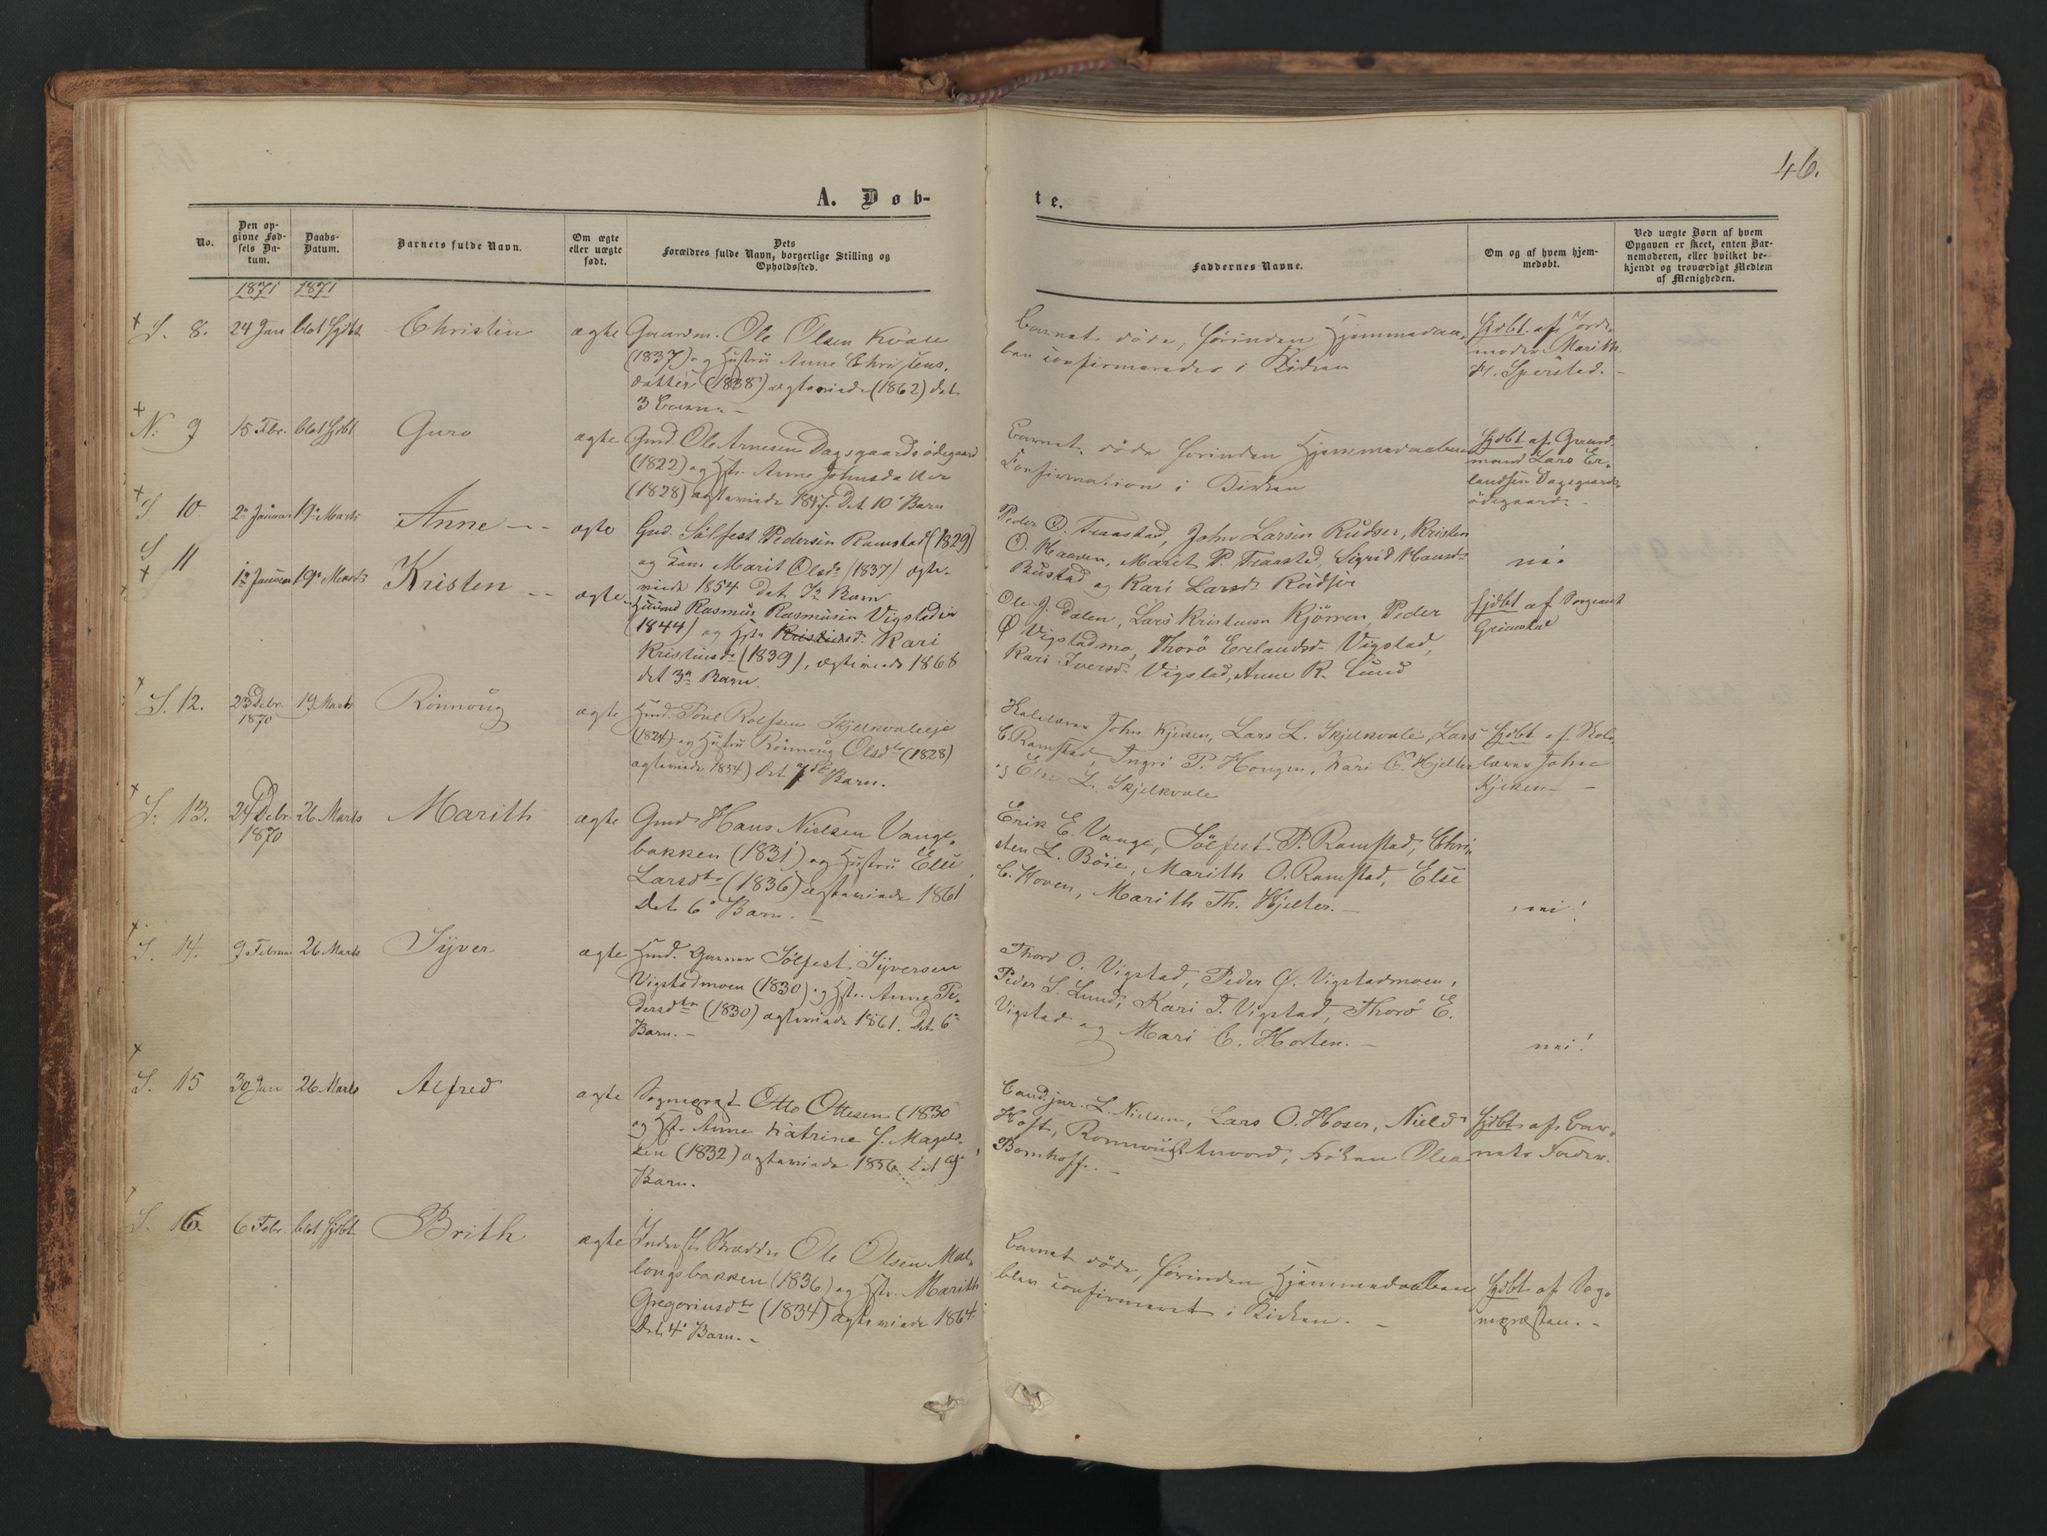 46.
A. Døb-
te.
No.
Den op-
givne Fød-
sels Da-
tum.
Daabs-
Datum.
Barnets fulde Navn.
Om ægte
eller uægte
født.
Dets
Forældres fulde Navn, borgerlige Stilling og
Opholdssted.
Faddernes Navne.
Om og af hvem hjem-
medøbt.
Ved uægte Børn af hvem
Opgaven er skeet, enten Bar-
nemoderen, eller hvilket be-
kjendt og troværdigt Medlem
af Menigheden.
1871 1871
S. 8. 24 Jan blot Hjdbt Christen ægte Gaardm. Ole Olsen Kvale
(1837) og Hustru Anne Christens.
datter (1838) ægteviede (1862) det
3 Barn. -
Barnet døde, førinden Hjemmedaa-
ben confirmeredes i Kirken
Hjdbt af Jorde
moder Marith
H. Sperstad. -
N. 9 15 Fbr. blot Hjdbt Guro ægte Gmd. Ole Arnesen Dagsgaardsødegaard
(1822) og Hstr. Anne Johnsdatter
(1828) ægteviede 1847. Det 10' Barn
Barnet døde førinden Hjemmedaabens
Confirmation i Kirken
Hjdbt af Gaard-
mand Lars Er-
landsen Dagsgaards
ødegaard. -
S 10. 2n Januar 19n Marts Anne -- ægte Gmd. Sølfest Pedersen Ramstad (1829)
og Marit Olsdr (1837) ægte-
viede 1854 det 7n Barn
Peder O. Fraastad, John Larsen Rudser, Kristen
O. Haaven, Maret P. Fraastad, Sigrid Hansdr
Bustad og Kari Larsdr
nei
S 11 1n Januar 19n Marts Kristen -- ægte Rasmus Rasmusen Vigstad
(1844) og Hstr Kari
Kristensdr (1839), ægteviede 1868
det 3n Barn.
Ole J. Dalen, Lars Kristensen Kjørren, Peder
Ø Vigstadmo, Thorø Erlandsdr Vigstad,
Kari Iversdr Vigstad, Anne R. Lund
Hjdbt af Sergeant
Grimstad
S. 12. 23 Debr. 19 Marts Rønnoug ægte Hmd. Poul Rolfsen Skjelkvaleeje
1870
(1824) og Hustru Rønnoug Olsdtr (1828)
ægteviede 1854) Det 7de Barn.
John Kjeken, Lars L. Skjelkvale, Lars
C. Ramstad, Ingri P. Hougen, Kari C. Hjelter
og Else L. Skjelkvale
Hjdbt af Skole
lærer John
Kjeken -
S. 13. 24 Debr. 26 Marts Marith ægte Gmd Hans Nielsen Vange-
1870
bakken (1831) og Hustru Else
Larsdtr (1836) ægteviede 1861
Det 6' Barn. -
Erik E. Vange, Sølfest P. Ramstad, Chri
sten L. Bøie, Marith O. Ramstad, Else
C. Hoven, Marith Th. Hjelter. -
nei!
S. 14. 9 Februar 26 Marts Syver ægte Hmd. Sølfest Syversen
Vigstadmoen (1830) og Hstr. Anne Pe-
dersdtr (1830) ægteviede 1861. Det 6'
Barn. -
Thord O. Vigstad, Peder Ø. Vigstadmoen,
Peder S. Lund, Kari I. Vigstad, Thorø E.
Vigstad og Mari C. Horten. -
nei!
S. 15 30 Jan 26 Marts Alfred ægte Sognepræst Otto Ottesen (1830
og Hst. Anne Katrine S. Magels-
sen (1832) ægteviede 1856. Det 9'
Barn. -
Candjur. L. Nielsen, Lars O. Hoser, Nield
Hoft, Ronnoug Anvord, Frøken Olea
Bomhoff. -
Hjdbt af Bar-
nets Fader.
S. 16. 6 Febr. blot Hjdbt Brith ægte Inderst Ole Olsen
(1836) og Hstr. Marith
Gregoriusdtr (1834) ægteviede 1864.
Det 4' Barn. -
Barnet døde, førinden Hjemmedaaben
blev confirmeret i Kirken. -
Hjdbt af Sog-
nepræsten. -